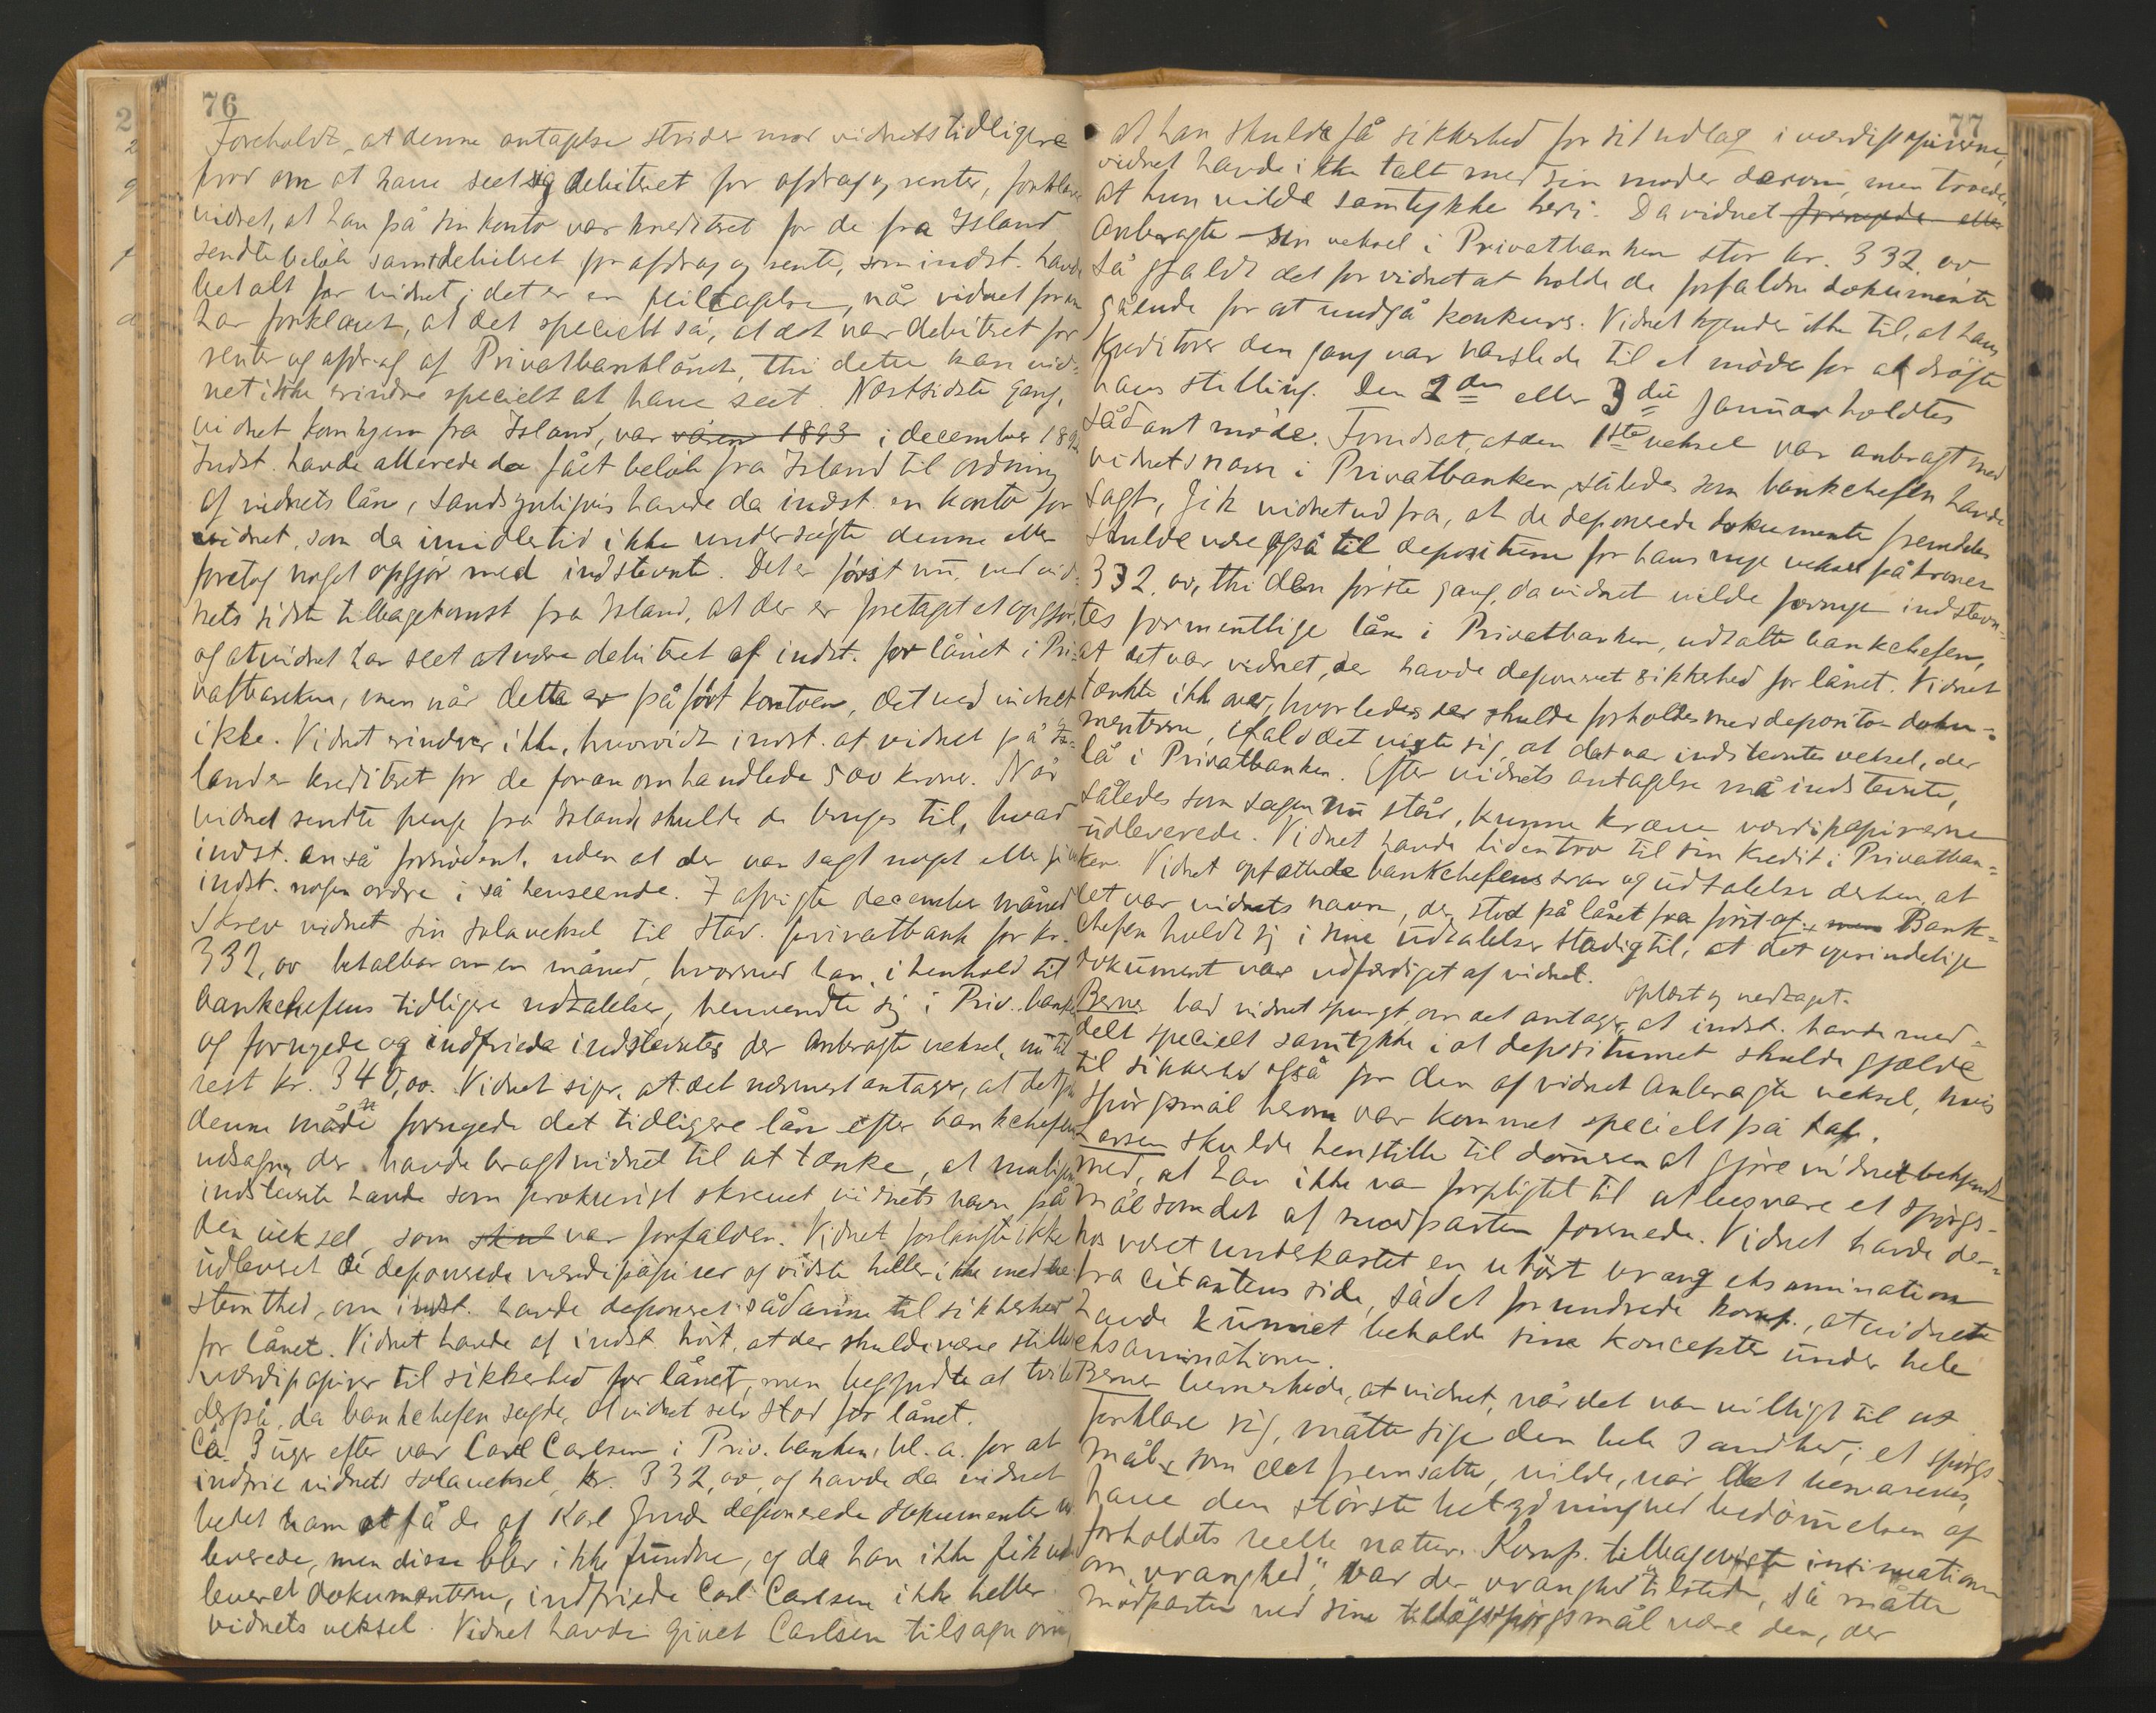 76
Foreholdt, at denne antagelse strider mod vidnets tidligere
prov om at have seet sig debiteret for afdrag og renter, forklarer
vidnet, at han på sin konto var krediteret for de fra Island
sendte beløb samt debiteret for afdrag og rente, som indst. havde
betalt for vidnet; det er en feiltagelse, når vidnet foran
har forklaret, at det specielt så, at det var debiteret for
renter og afdrag af Privatbanklånet, thi dette kan vid=
net ikke erindre specielt at have seet. Næstsidste gang,
vidnet kom hjem fra Island, var våren 1893 i december 1892
Indst. havde allerede da fået beløb fra Island til ordning
af vidnets lån, sandsynligvis havde da indst. en konto for
vidnet, som da imidlertid ikke undersøgte denne eller
foretog noget opgjør med indstevnte. Det er først nu, ved vid=
nets sidste tilbagekomst fra Island, at der er foretaget et opgjør,
og at vidnet har seet at være debiteret af indst. for lånet i Pri=
vatbanken, men når dette er påført kontoen, det ved vidnet
ikke. Vidnet erindrer ikke, hvorvidt indst. at vidnet på Is=
land er krediteret for de foran omhandlede 500 kroner. Når
vidnet sendte penge fra Island, skulde de bruges til, hvad
indst. anså fornødent, uden at der var sagt noget eller givet
indst. nogen ordre i så henseende. I afvigte december måned
skrev vidnet sin solaveksel til Stav. privatbank for kr.
332,00 betalbar om en måned, hvormed han, i henhold til
bankchefens tidligere udtalelse, henvendte sig i Priv. banken
og fornyede og indfriede indstevntes der anbragte veksel, nu til
rest kr. 340,00. Vidnet siger, at det nærmest antager, at det på
denne måde fornyede det tidligere lån efter bankchefens
udsagn, der havde bragt vidnet til at tænke, at muligens
indstevnte havde som prokurist skrevet vidnets navn på
den veksel, som skul var forfalden. Vidnet forlangte ikke
udleveret de deponerede værdipapirer og vidste heller ikke med be=
stemthed, om indst. havde deponeret sådanne til sikkerhed
for lånet. Vidnet havde af indst. hørt, at der skulde være stillet
værdipapirer til sikkerhed for lånet, men begyndte at tvile
derpå, da bankchefen sagde, at vidnet selv stod for lånet.
Ca. 3 uger efter var Carl Carlsen i Priv. banken, bl. a. for at
indfrie vidnets solaveksel, kr. 332,00, og havde da vidnet
bedet ham at få de af Karl deponerede dokumenter ud=
leverede, men disse blev ikke fundne, og da han ikke fik ud=
leveret dokumenterne, indfriede Carl Carlsen ikke heller
vidnets veksel. Vidnet havde givet Carlsen tilsagn om,
77
at han skulde få sikkerhed for sit udlæg i værdipapirerne,
vidnet havde ikke talt med sin moder derom, men troede,
at hun vilde samtykke heri. Da vidnet fornyede eller
anbragte sin veksel i Privatbanken stor kr. 332,00
så gjaldt det for vidnet at holde de forfaldne dokumenter
gående for at undgå konkurs. Vidnet kjender ikke til, at hans
kreditorer den gang var varslede til et møde for at drøfte
hans stilling. Den 2den eller 3die januar holdtes
sådant møde. Forudsat, at den 1ste veksel var anbragt med
vidnets navn i Privatbanken, således som bankchefen havde
sagt, gik vidnet ud fra, at de deponerede dokumenter fremdeles
skulde være også til depositum for hans nye veksel på kroner
332,00, thi den første gang, da vidnet vilde fornye indstevn=
tes formentlige lån i Privatbanken, udtalte bankchefen,
at det var vidnet, der havde deponeret sikkerhed for lånet. Vidnet
tænkte ikke over, hvorledes der skulde forholdes med deposito doku=
menterne, ifald det viste sig, at det var indstevntes veksel, der
lå i Privatbanken. Efter vidnets antagelse må indstevnte,
således som sagen nu står, kunne kræve værdipapirerne
udleverede. Vidnet havde liden tro til sin kredit i Privatban=
ken. Vidnet opfattede bankchefens svar og udtalelse derhen, at
det var vidnets navn, der stod på lånet fra først af, men Bank=
chefen holdt sig i sine udtalelser stadig til, at det oprindelige
dokument var udfærdiget af vidnet.
Oplæst og vedtaget.
Berner bad vidnet spurgt, om det antager, at indst. havde med=
delt specielt samtykke i at depositumet skulde gjælde
til sikkerhed også for den af vidnet anbragte veksel, hvis
spørgsmål herom var kommet specielt på tale.
Larsen skulde henstille til dommeren at gjøre vidnet bekjendt
med, at han ikke var forpligtet til at besvare et spørgs=
mål som det af modparten foranede. Vidnet havde der=
hos været underkastet en uhørt vrang eksamination
fra citantens side, så det forundrede komp., at vidnet
havde kunnet beholde sine koncepter under hele
eksaminationen.
Berner bemerkede, at vidnet, når det var villigt til at
forklare sig, måtte sige den hele sandhed; et spørgs=
mål, som det fremsatte, vilde, når det besvaredes,
have den største betydning ved bedømmelsen af
forholdets reelle natur. Komp. tilbageviste insinuationen
om „vranghed“; var der „vranghed“ tilstede, så måtte
modparten ved sine tillægsspørgsmål være den, der